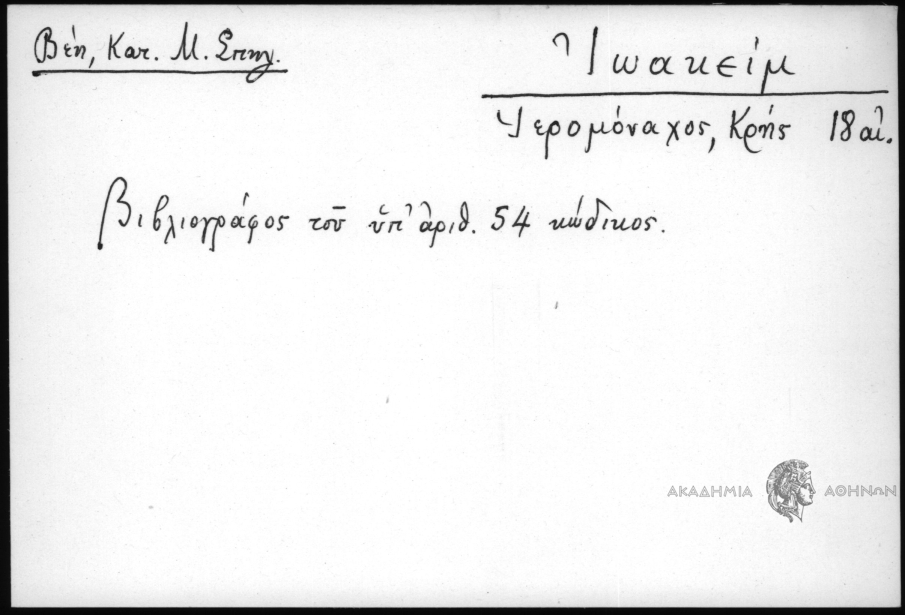 Βέη, Κατ. Μ. Σπηλ.
Ἰωακείμ
Ἱερομόναχος, Κρής 18 αἰ.
Βιβλιογράφος τοῦ ὑπ' ἀριθ. 54 κώδικος.
ΑΚΑΔΗΜΙΑ ΑΘΗΝΩΝ